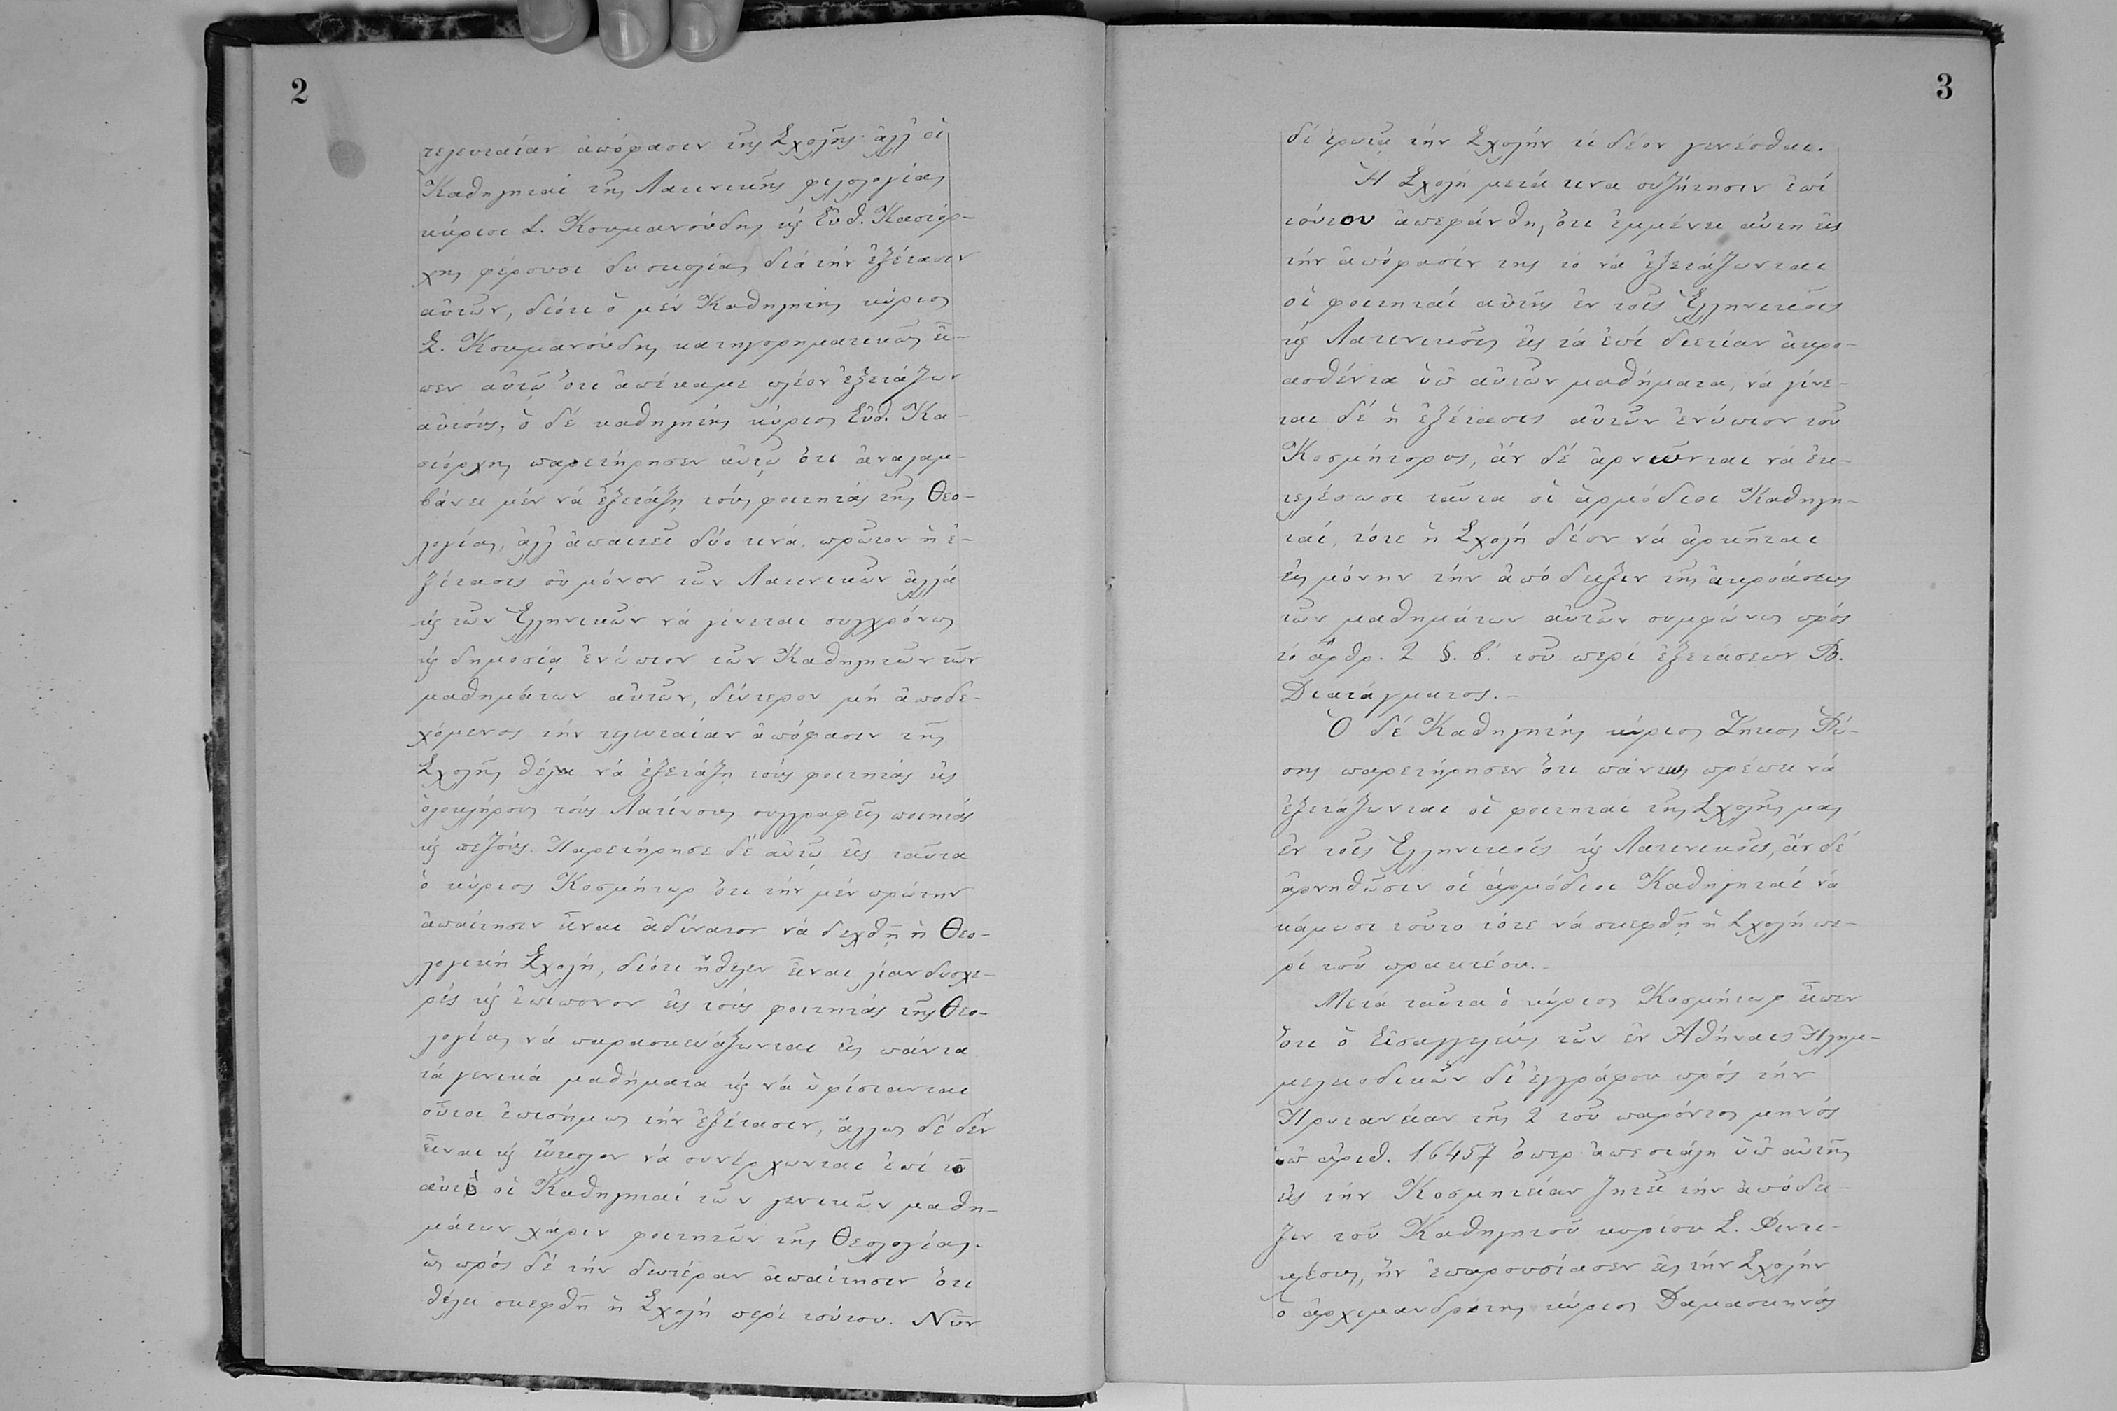 2
τελευταίαν ἀπόφασιν τῆς Σχολῆς· ἀλλ' οἱ
Καθηγηταὶ τῆς Λατινικῆς φιλολογίας
κύριοι Σ. Κουμανούδης καὶ Εὐθ. Καστόρ-
χης φέρουσι δυσκολίας διὰ τὴν ἐξέτασιν
αὐτῶν, διότι ὁ μὲν Καθηγητὴς κύριος
Σ. Κουμανούδης κατηγορηματικῶς εἶ-
πεν αὐτῷ ὅτι ἀπέκαμε πλέον ἐξετάζων
αὐτούς, ὁ δὲ καθηγητὴς κύριος Εὐθ. Κα-
στόρχης παρετήρησεν αὐτῷ ὅτι ἀναλαμ-
βάνει μὲν νὰ ἐξετάζῃ τοὺς φοιτητὰς τῆς Θεο-
λογίας, ἀλλ' ἀπαιτεῖ δύο τινά. πρῶτον ἡ ἐ-
ξέτασις οὐ μόνον τῶν Λατινικῶν ἀλλὰ
καὶ τῶν Ἑλληνικῶν νὰ γίνεται συγχρόνως
καὶ δημοσίᾳ ἐνώπιον τῶν Καθηγητῶν τῶν
μαθημάτων αὐτῶν, δεύτερον μὴ ἀποδε-
χόμενος τὴν τελευταίαν ἀπόφασιν τῆς
Σχολῆς θέλει νὰ ἐξετάζῃ τοὺς φοιτητὰς εἰς
ὁλοκλήρους τοὺς Λατίνους συγγραφεῖς ποιητὰς
καὶ πεζούς. Παρετήρησε δὲ αὐτῷ εἰς ταῦτα
ὁ κύριος Κοσμήτωρ ὅτι τὴν μὲν πρώτην
ἀπαίτησιν εἶναι ἀδύνατον νὰ δεχθῇ ἡ Θεο-
λογικὴ Σχολή, διότι ἤθελεν εἶναι λίαν δυσχε-
ρὲς καὶ ἐπίπονον εἰς τοὺς φοιτητὰς τῆς Θεο-
λογίας νὰ παρασκευάζωνται εἰς πάντα
τὰ γενικὰ μαθήματα καὶ νὰ ὑφίστανται
οὗτοι ἐπισήμως τὴν ἐξέτασιν, ἄλλως δὲ δὲν
εἶναι καὶ εὔκολον νὰ συνέρχωνται ἐπὶ τὸ
αὐτὸ οἱ Καθηγηταὶ τῶν γενικῶν μαθη-
μάτων χάριν φοιτητῶν τῆς Θεολογίας.
ὡς πρὸς δὲ τὴν δευτέραν ἀπαίτησιν ὅτι
θέλει σκεφθῆ ἡ Σχολὴ περὶ τούτου. Νῦν
3
δὲ ἐρωτᾷ τὴν Σχολὴν τί δέον γενέσθαι.
Ἡ Σχολὴ μετά τινα συζήτησιν ἐπὶ
τούτου ἀπεφάνθη, ὅτι ἐμμένει αὕτη εἰς
τὴν ἀπόφασίν της τὸ νὰ ἐξετάζωνται
οἱ φοιτηταὶ αὐτῆς ἐν τοῖς Ἑλληνικοῖς
καὶ Λατινικοῖς εἰς τὰ ἐπὶ διετίαν ἀκρο-
ασθέντα ὑπ' αὐτῶν μαθήματα, νὰ γίνε-
ται δὲ ἡ ἐξέτασις αὐτῶν ἐνώπιον τοῦ
Κοσμήτορος, ἂν δὲ ἀρνῶνται νὰ ἐκ-
τελέσωσι ταῦτα οἱ ἁρμόδιοι Καθηγη-
ταί, τότε ἡ Σχολὴ δέον νὰ ἀρκῆται
εἰς μόνην τὴν ἀπόδειξιν τῆς ἀκροάσεως
τῶν μαθημάτων αὐτῶν συμφώνως πρὸς
τὸ ἄρθρ. 2 §. β'. τοῦ περὶ ἐξετάσεων Β.
Διατάγματος.-
Ὁ δὲ Καθηγητὴς κύριος Ζῆκος Ῥώ-
σης παρετήρησεν ὅτι πάντως πρέπει νὰ
ἐξετάζωνται οἱ φοιτηταὶ τῆς Σχολῆς μας
ἐν τοῖς Ἑλληνικοῖς καὶ Λατινικοῖς, ἂν δὲ
ἀρνηθῶσιν οἱ ἁρμόδιοι Καθηγηταὶ νὰ
κάμωσι τοῦτο τότε νὰ σκεφθῇ ἡ Σχολὴ πε-
ρὶ τοῦ πρακτέου.-
Μετὰ ταῦτα ὁ κύριος Κοσμήτωρ εἶπεν
ὅτι ὁ Εἰσαγγελεὺς τῶν ἐν Ἀθήναις Πλημ-
μελειοδικῶν δι' ἐγγράφου πρὸς τὴν
Πρυτανείαν τῆς 2 τοῦ παρόντος μηνὸς
ὑπ' ἀριθ. 16457 ὅπερ ἀπεστάλη ὑπ' αὐτῆς
εἰς τὴν Κοσμητείαν ζητεῖ τὴν ἀπόδει-
ξιν τοῦ Καθηγητοῦ κυρίου Σ. Φιντι-
κλέους, ἣν ἐπαρουσίασεν εἰς τὴν Σχολὴν
ὁ ἀρχιμανδρίτης κύριος Δαμασκηνὸς